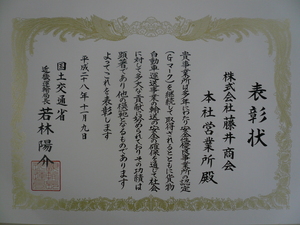 表彰状
株式会社藤井商会
本社営業所 殿
貴事業所は多年にわたり安全性優良事業所の認定
(Gマーク)を継続して取得されるとともに貨物
自動車運送事業の輸送の安全の確保を通じて社会
に対して多大な貢献をされておりその功績は
顕著であり他の模範となるものであります
よってこれを表彰します
平成二十八年十一月九日
国土交通省
近畿運輸局長 若林陽介